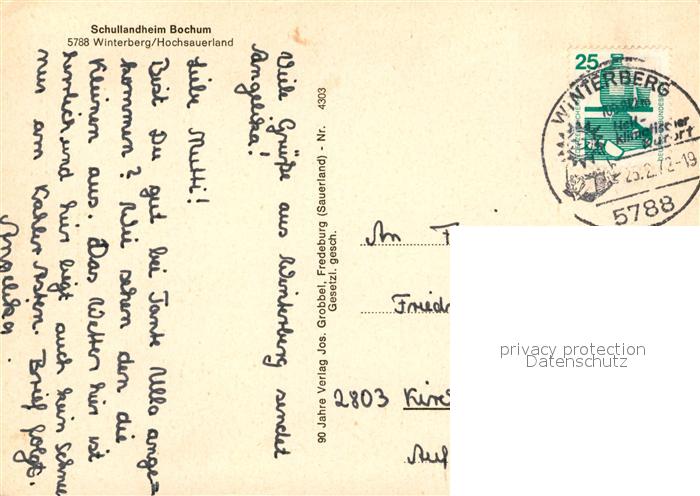 Schullandheim Bochum
5788 Winterberg/Hochsauerland
Viele Grüße aus Winterberg sendet
Angelika!
Liebe Mutti!
Bist Du gut bei Tante Ulla ange-
kommen? Wie sehen den die
Kleinen aus. Das Wetter hier ist
herrlich und hier liegt auch kein Schnee
nur am Kahler Asten. Brief folgt.
Angelika.
90 Jahre Verlag Jos. Grobbel, Fredeburg (Sauerland) - Nr. 4303
Gesetzl. gesch.
25
WINTERBERG
Heil-
klimatischer
Kurort
-19
5788
An F
Friedr
2803 Kirch
Auf
privacy protection
Datenschutz